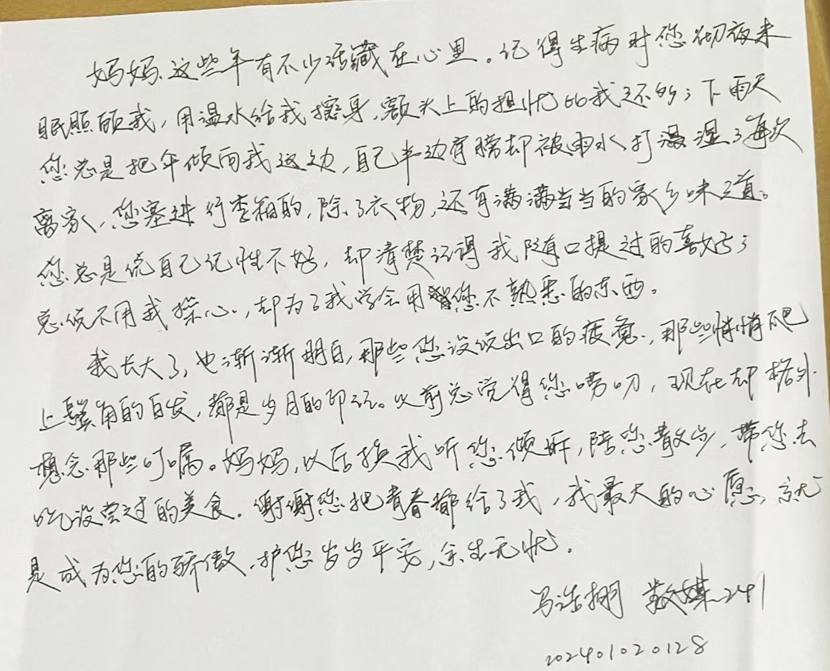 妈妈，这些年有不少话藏在心里。记得生病时您彻夜未
眠照顾我，用温水给我擦身，额头上的担忧比我还多；下雨天
您总是把伞倾向我这边，自己半边肩膀却被雨水打湿；每次
离家，您塞进行李箱的，除了衣物，还有满满当当的家乡味道。
您总是说自己记性不好，却清楚记得我随口提过的喜好；
总说不用我操心，却为了我学会用您不熟悉的东西。
我长大了，也渐渐明白，那些您没说出口的疲惫，那些悄悄爬
上鬓角的白发，都是岁月的印记。以前总觉得您唠叨，现在却格外
想念那些叮嘱。妈妈，以后换我听您倾诉，陪您散步，带您去
吃没尝过的美食。谢谢您把青春都给了我，我最大的心愿，就
是成为您的骄傲，护您岁岁平安，余生无忧。
马浩栩 数媒241
202401020128